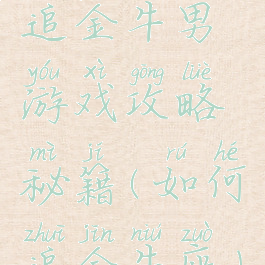 追金牛男
yóu xì gōng lüè
游戏攻略
mì jí rú hé
秘籍(如何
zhuī jīn niú zuò
追金牛座)